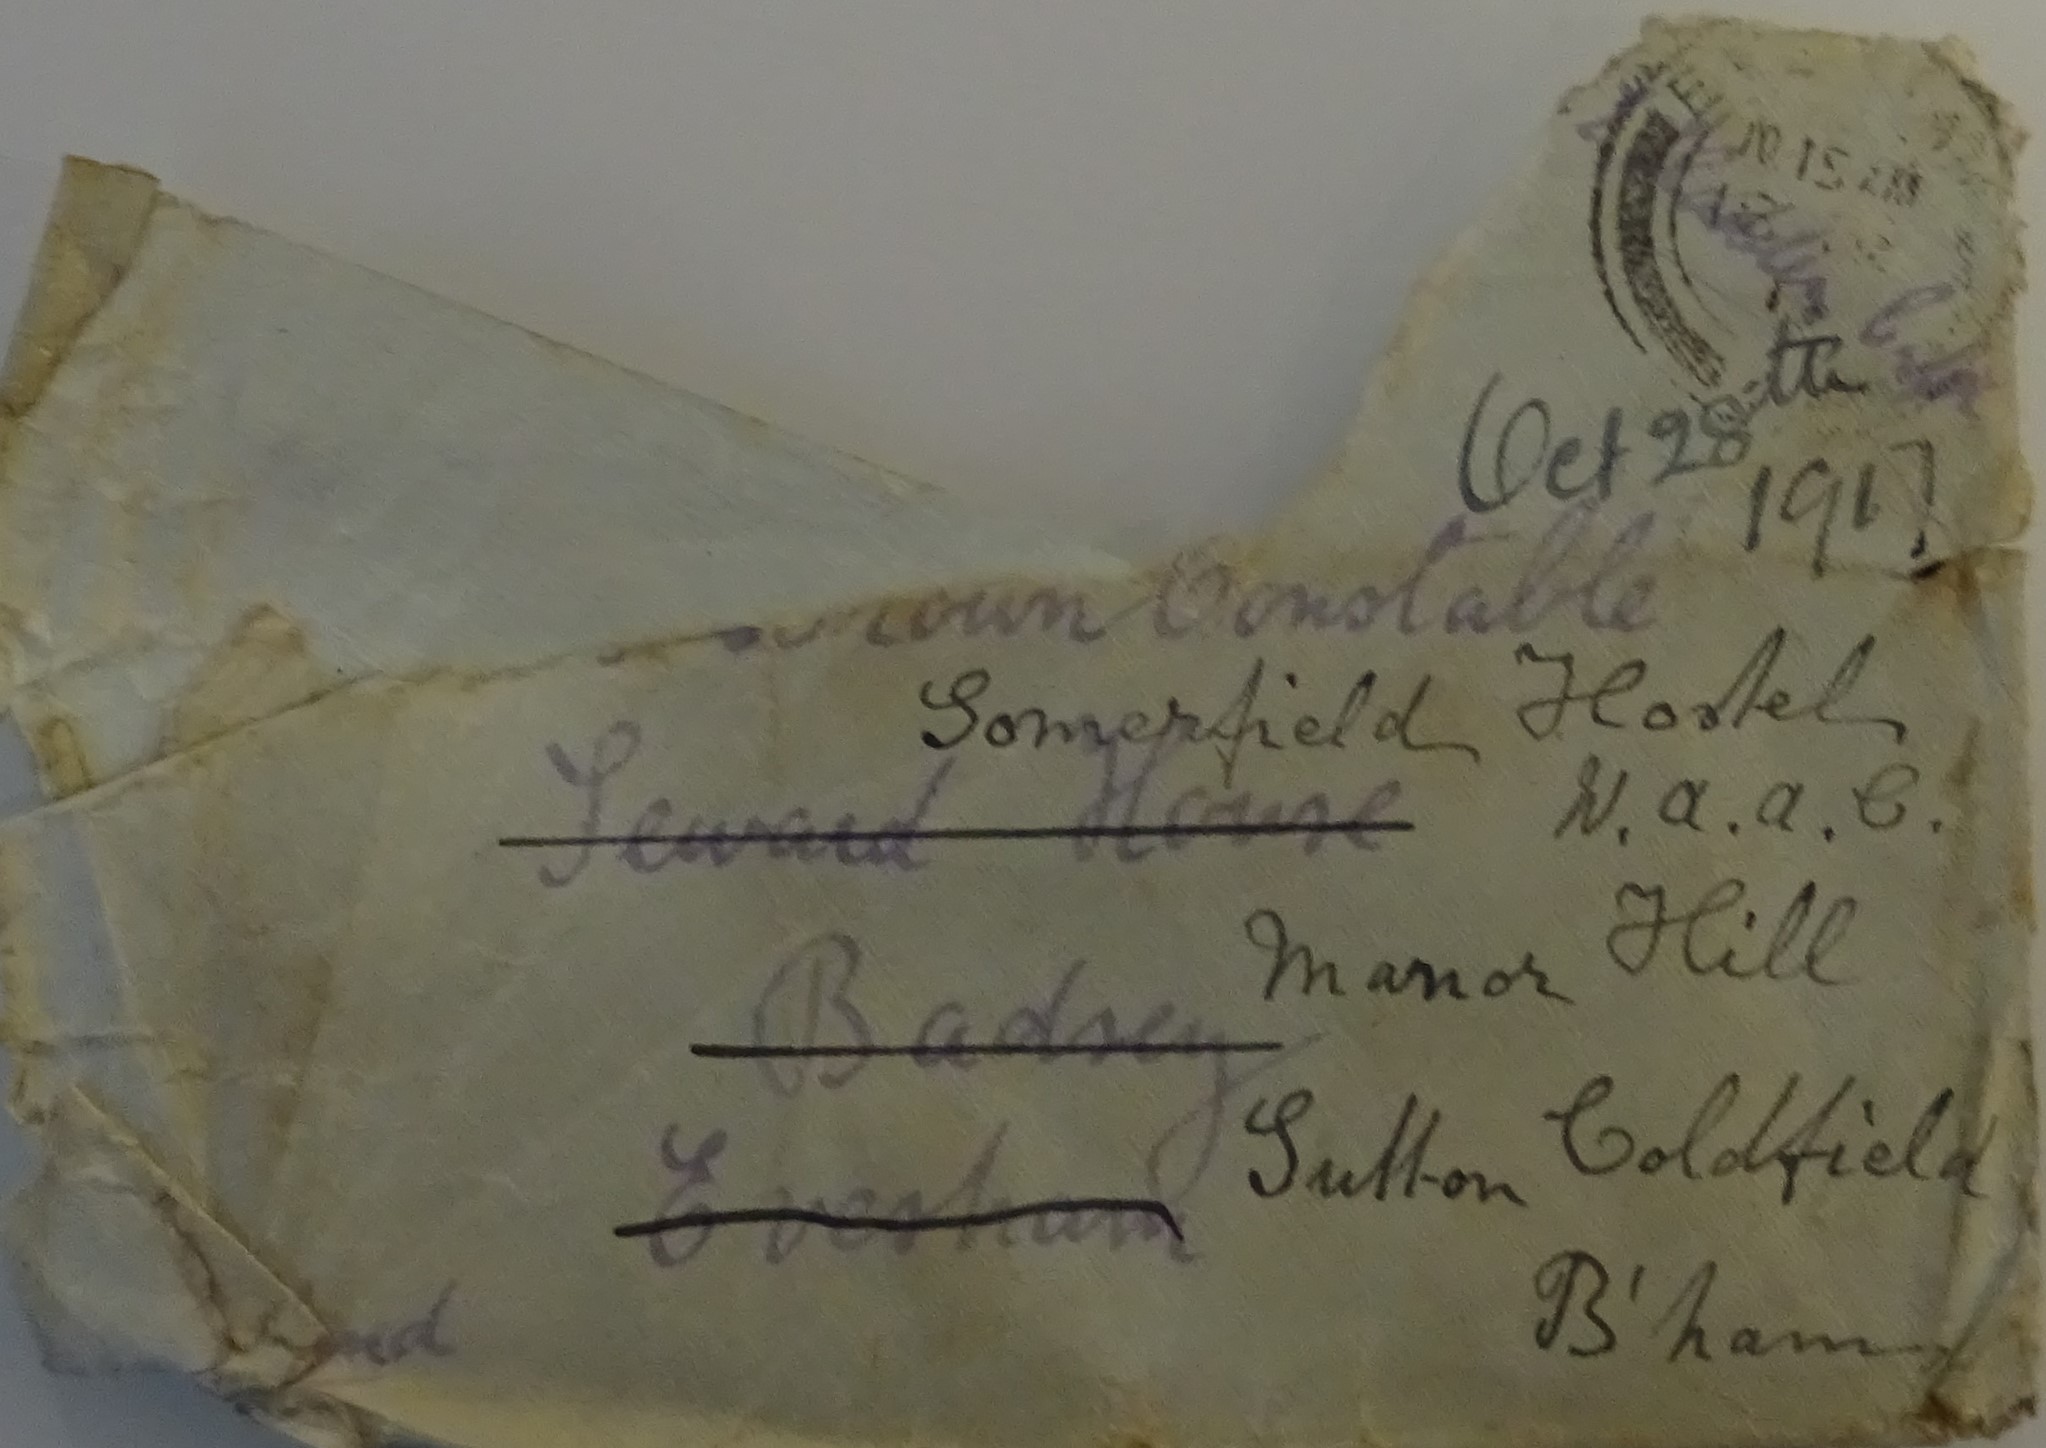 10 15 AM
Oct 28th
1917
Constable
Somerfield Hostel
Seward House
W.a.a.C.
Manor Hill
Badsey
Sutton Coldfield
Evesham
B'ham